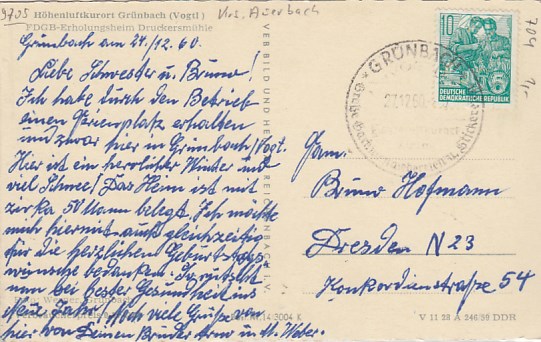 9705
Krs. Auerbach
Höhenluftkurort Grünbach (Vogtl)
FDGB-Erholungsheim Druckersmühle
Grünbach am 24/12.60.
Liebe Schwester u. Bruno!
Ich habe durch den Betrieb
einen Ferienplatz erhalten
und zwar hier in Grünbach/Vogt.
Hier ist ein herrlicher Winter und
viel Schnee! Das Heim ist mit
zirka 50 Mann belegt. Ich möchte
mich hiermit auch gleichzeitig
für die herzlichen Geburtstags
wünsche bedanken. So rutscht
nun bei bester Gesundheit ins
Neue Jahr. Noch viele Grüße von
hier von Deinen Bruder Arno u. M. Weber.
Foto: Werner, Grünbach
14/3004 K
VEB BILD UND HEIMAT REICHENBACH I. V.
10
DEUTSCHE
DEMOKRATISCHE REPUBLIK
GRÜNBACH
27.12.60
704
Fam.
Bruno Hofmann
Dresden N 23
Konkordienstraße 54
V 11 28 A 246/59 DDR